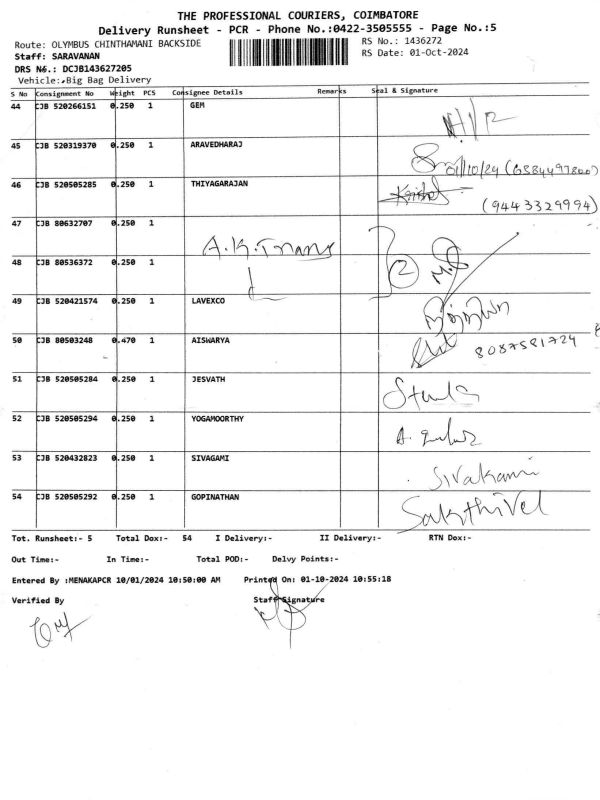 THE PROFESSIONAL COURIERS, COIMBATORE
Delivery Runsheet - PCR - Phone No.:0422-3505555 - Page No.:5
Route: OLYMBUS CHINTHAMANI BACKSIDE
RS No.: 1436272
Staff: SARAVANAN
RS Date: 01-Oct-2024
DRS No.: DCJB143627205
Vehicle:-Big Bag Delivery
S No Consignment No Weight PCS Consignee Details Remarks Seal & Signature
44 CJB 520266151 0.250 1 GEM
45 CJB 520319370 0.250 1 ARAVEDHARAJ
01/10/24
46 CJB 520505285 0.250 1 THIYAGARAJAN
(9443329994)
47 CJB 80632707 0.250 1
2
48 CJB 80536372 0.250 1
49 CJB 520421574 0.250 1 LAVEXCO
50 CJB 80503248 0.470 1 AISWARYA
8087581724
51 CJB 520505284 0.250 1 JESVATH
52 CJB 520505294 0.250 1 YOGAMOORTHY
53 CJB 520432823 0.250 1 SIVAGAMI
Sivakami
54 CJB 520505292 0.250 1 GOPINATHAN
Sakthivel
Tot. Runsheet:- 5 Total Dox:- 54 I Delivery:- II Delivery:- RTN Dox:-
Out Time:- In Time:- Total POD:- Delvy Points:-
Entered By :MENAKAPCR 10/01/2024 10:50:00 AM Printed On: 01-10-2024 10:55:18
Verified By Staff Signature